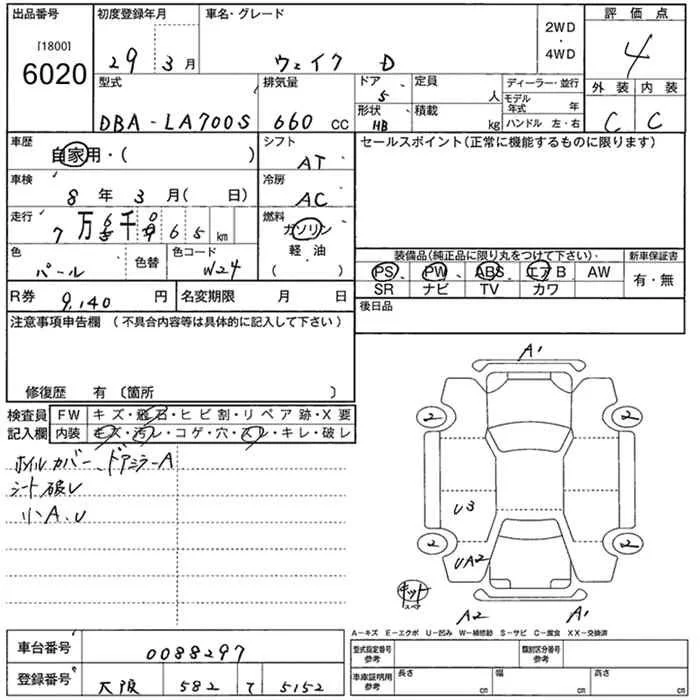 出品番号
[1800]
6020
初度登録年月
29 3月
車名・グレード
ウェイク D
2WD
・
4WD
評価点
4
型式
DBA-LA700S
排気量
660 cc
ドア
5
形状
HB
定員
人
積載
kg
ディーラー・並行
モデル年式 年
ハンドル 左・右
外装 内装
C C
車歴
自家用・( )
シフト
AT
セールスポイント(正常に機能するものに限ります)
車検
8年 3月( 日)
冷房
AC
走行
7万 6千 065 km
燃料
ガソリン
軽油
( )
色
パール
色替
色コード
W24
装備品(純正品に限り丸をつけて下さい)
新車保証書
PS PW ABS エアB AW
SR ナビ TV カワ
有・無
R券 9,140 円
名変期限 月 日
後日品
注意事項申告欄(不具合内容等は具体的に記入して下さい)
修復歴 有 〔箇所 〕
検査員
記入欄
FW キズ・飛石・ヒビ割・リペア跡・X要
内装 キズ・汚レ・コゲ・穴・スレ・キレ・破レ
ホイルカバー、ドアミラーA
シート破レ
小A.U
A1
2 2
U3
2 2
UA2
キット
A2 A1
A-キズ E-エクボ U-凹み W-補修跡 S-サビ C-腐食 XX-交換済
車台番号 0088297
登録番号 大阪 582 て 5152
型式指定番号
参考
類別区分番号
参考
車庫証明用
参考
長さ cm
幅 cm
高さ cm